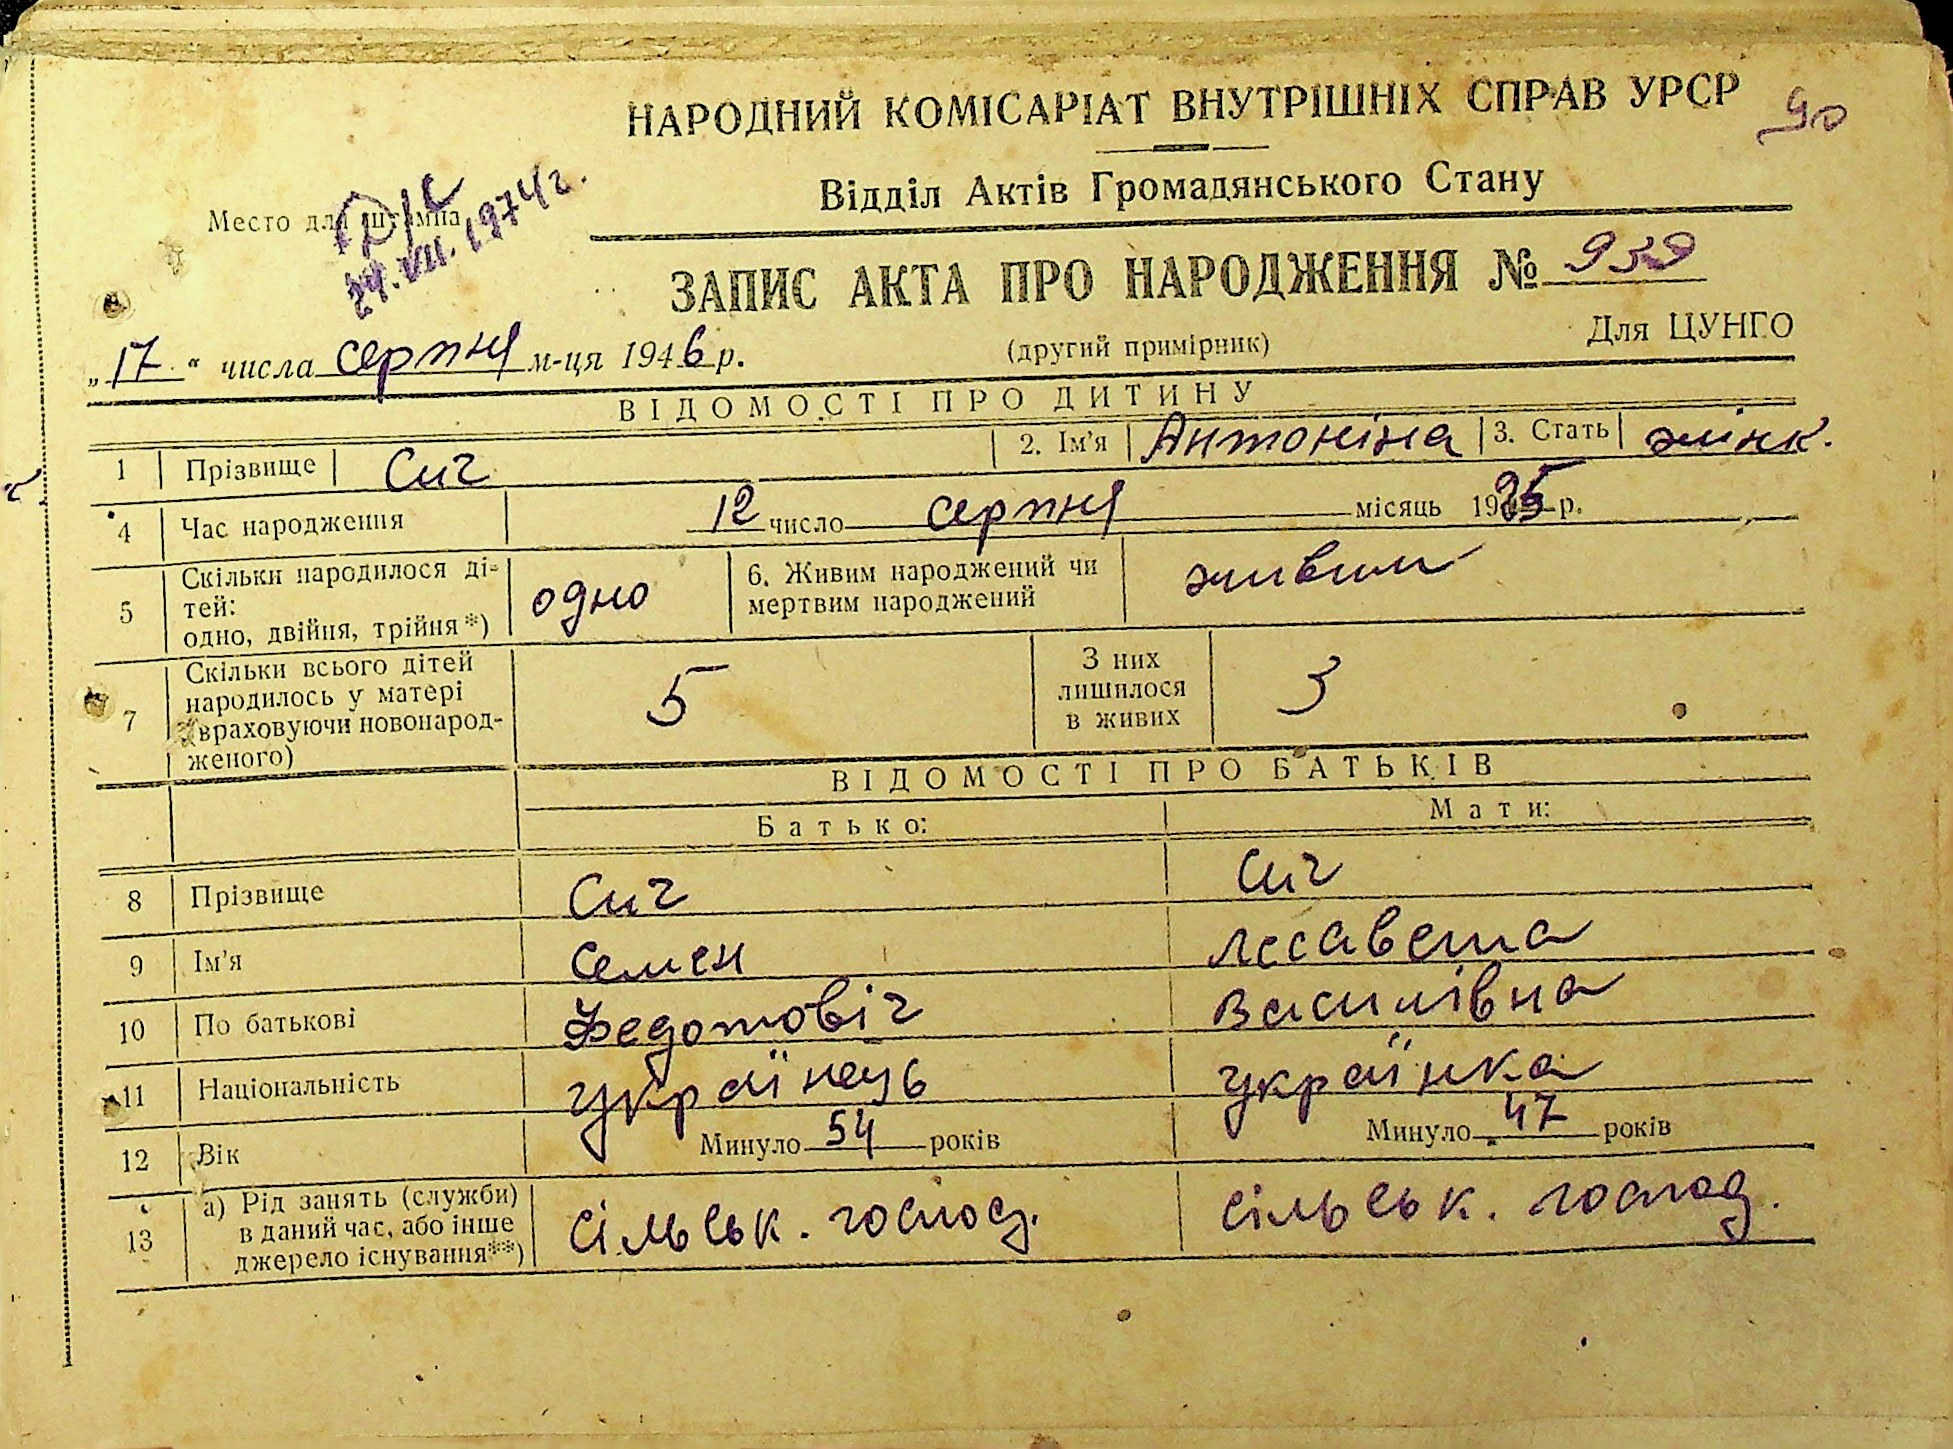 НАРОДНИЙ КОМІСАРІАТ ВНУТРІШНІХ СПРАВ УРСР 90
Відділ Актів Громадянського Стану
Место для штампа
24.VII.1974г.
ЗАПИС АКТА ПРО НАРОДЖЕННЯ № 939
„17“ числа серпня м-ця 1946 р. (другий примірник) Для ЦУНГО
ВІДОМОСТІ ПРО ДИТИНУ
1 Прізвище Сич 2. Ім'я Антоніна 3. Стать жінк.
4 Час народження 12 число серпня місяць 1925 р.
5 Скільки народилося ді-
тей:
одно, двійня, трійня*) одно 6. Живим народжений чи
мертвим народжений живим
7 Скільки всього дітей
народилось у матері
(враховуючи новонарод-
женого) 5 З них
лишилося
в живих 3
ВІДОМОСТІ ПРО БАТЬКІВ
Батько: Мати:
8 Прізвище Сич Сич
9 Ім'я Семен Лесавета
10 По батькові Федотовіч Василівна
11 Національність українець українка
12 Вік Минуло 54 років Минуло 47 років
13 а) Рід занять (служби)
в даний час, або інше
джерело існування**) сільськ. господ. сільськ. господ.